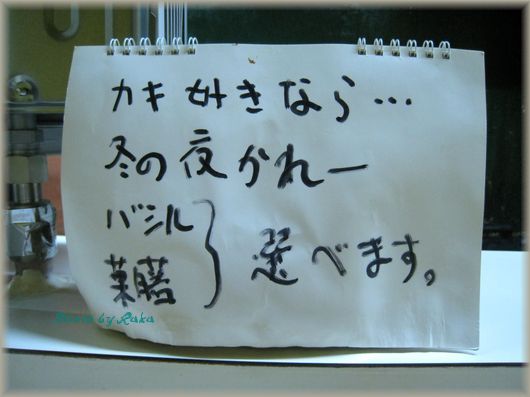 カキ好きなら…
冬の夜かれー
バジル
薬膳
選べます。
Photo by Raka